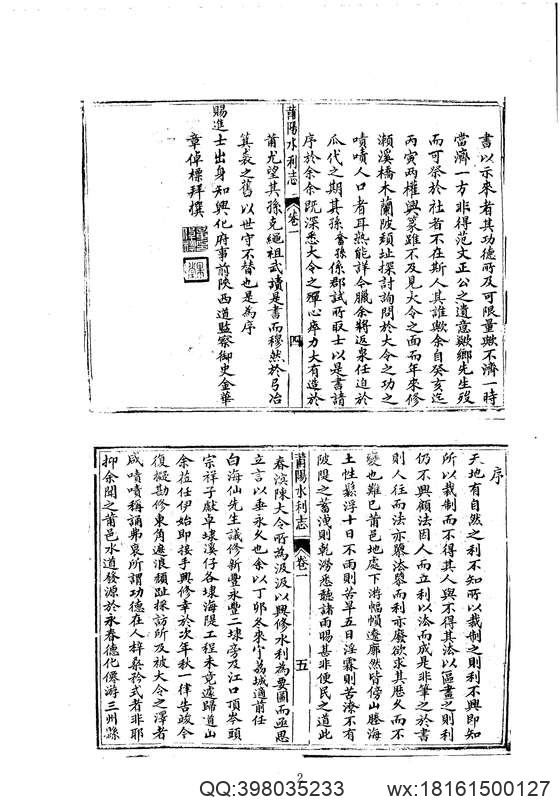 書以示來者其功德所及可限量歟不濟一時
當濟一方非得范文正公之遺意歟鄉先生歿
而可祭於社者不在斯人其誰歟余自癸亥迄
丙寅兩權興篆雖不及見大令之面而年來修
瀨溪橋木蘭陂頹址探討詢問於大令之功之
嘖嘖人口者耳熟能詳今臘余將返泉任迫於
瓜代之期其孫喬孫係郡試所取士以是書請
序於余余既深悉大令之殫心瘁力大有造於
莆陽水利志
卷一
四
莆尤望其孫克繩祖武讀是書而穆然於弓冶
箕裘之舊以世守不替也是為序
賜進士出身知興化府事前陝西道監察御史金華
章倬標拜撰
序
天地有自然之利不知所以裁制之則利不興即知
所以裁制而不得其人與不得其法以區畫之則利
仍不興顧法因人而立利以法而成是非筆之於書
則人往而法亦隳法隳而利亦廢欲求其歷久而不
變也難已莆邑地處下游幅幀遼廓然皆傍山塍海
土性鬆浮十日不雨則苦旱五日淫霖則苦潦不有
陂隄之蓄洩則乾澇悉聽諸雨暘甚非便民之道此
莆陽水利志
卷一
五
春濱陳大令所為汲汲以興修水利為要圖而亟思
立言以垂永久也余以丁卯冬來守荔城適前任
白海仙先生議修新豐永豐二埭旁及江口頂岑頭
宗祥子獻卓埭溪仔各埭海隄工程未竟遽歸道山
余蒞任伊始即接手興修幸於次年秋一律告竣今
復擬勘修東角遮浪頹趾採訪所及被大令之澤者
咸嘖嘖稱誦弗衰所謂功德在人梓桑矜式者非耶
抑余聞之莆邑水道發源於永春德化僊游三州縣
2
QQ:398035233
wx:18161500127